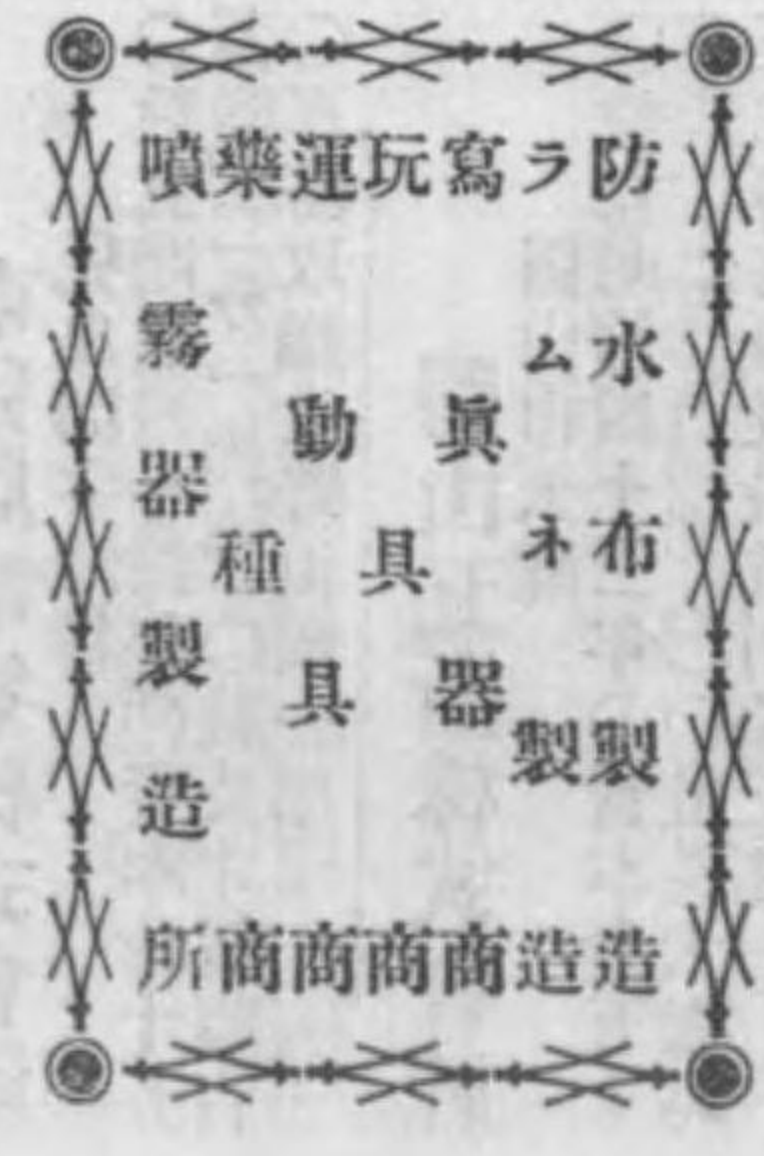 防水布製造
ラムネ製造
寫眞器商
玩具商
運動具商
藥種商
噴霧器製造所